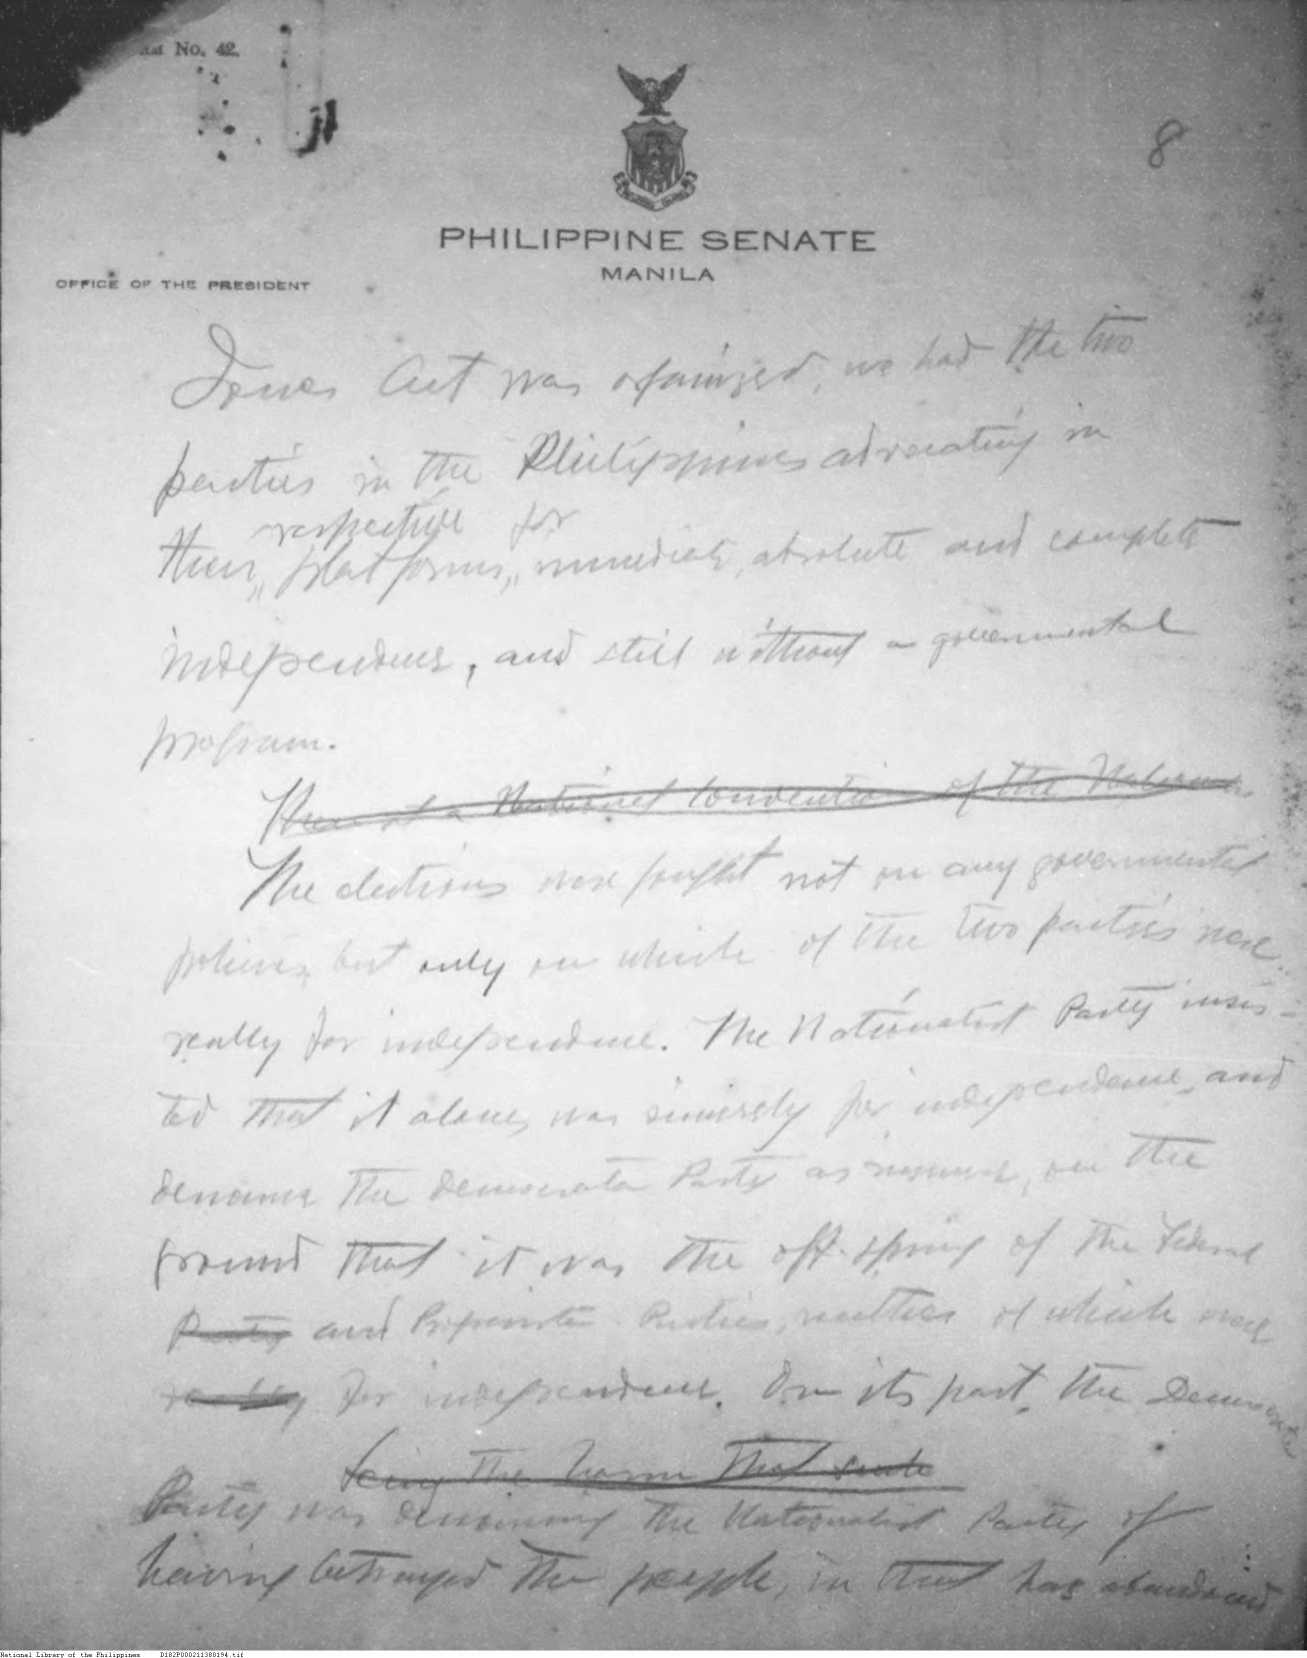 No. 42.
8
PHILIPPINE SENATE
MANILA
OFFICE OF THE PRESIDENT
Jones Act was organized, we had the two
parties in the Philippines advocating in
respective for
their platforms, immediate, absolute and complete
independence, and still without a governmental
program.
National Convention of the
The elections were fought not on any governmental
policies, but only on which of the two parties were
really for independence. The Nationalist Party insis-
ted that it alone, was sincerely for independence, and
denounce the Democrata Party as insincere, on the
ground that it was the off-spring of the Federal
Party and Progresista Parties, neither of which were
really for independence. On its part, the Democrata
being the that
Party was denouncing the Nationalist Party of
having betrayed the people, in that has abandoned
National Library of the Philippines D182P000211388194.tif